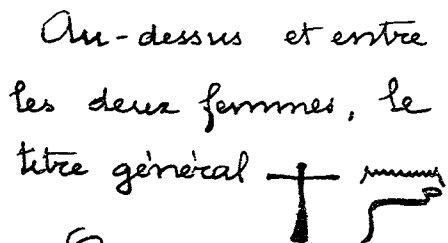 Au-dessus et entre
les deux femmes, le
titre général 𓋴𓈖𓆓